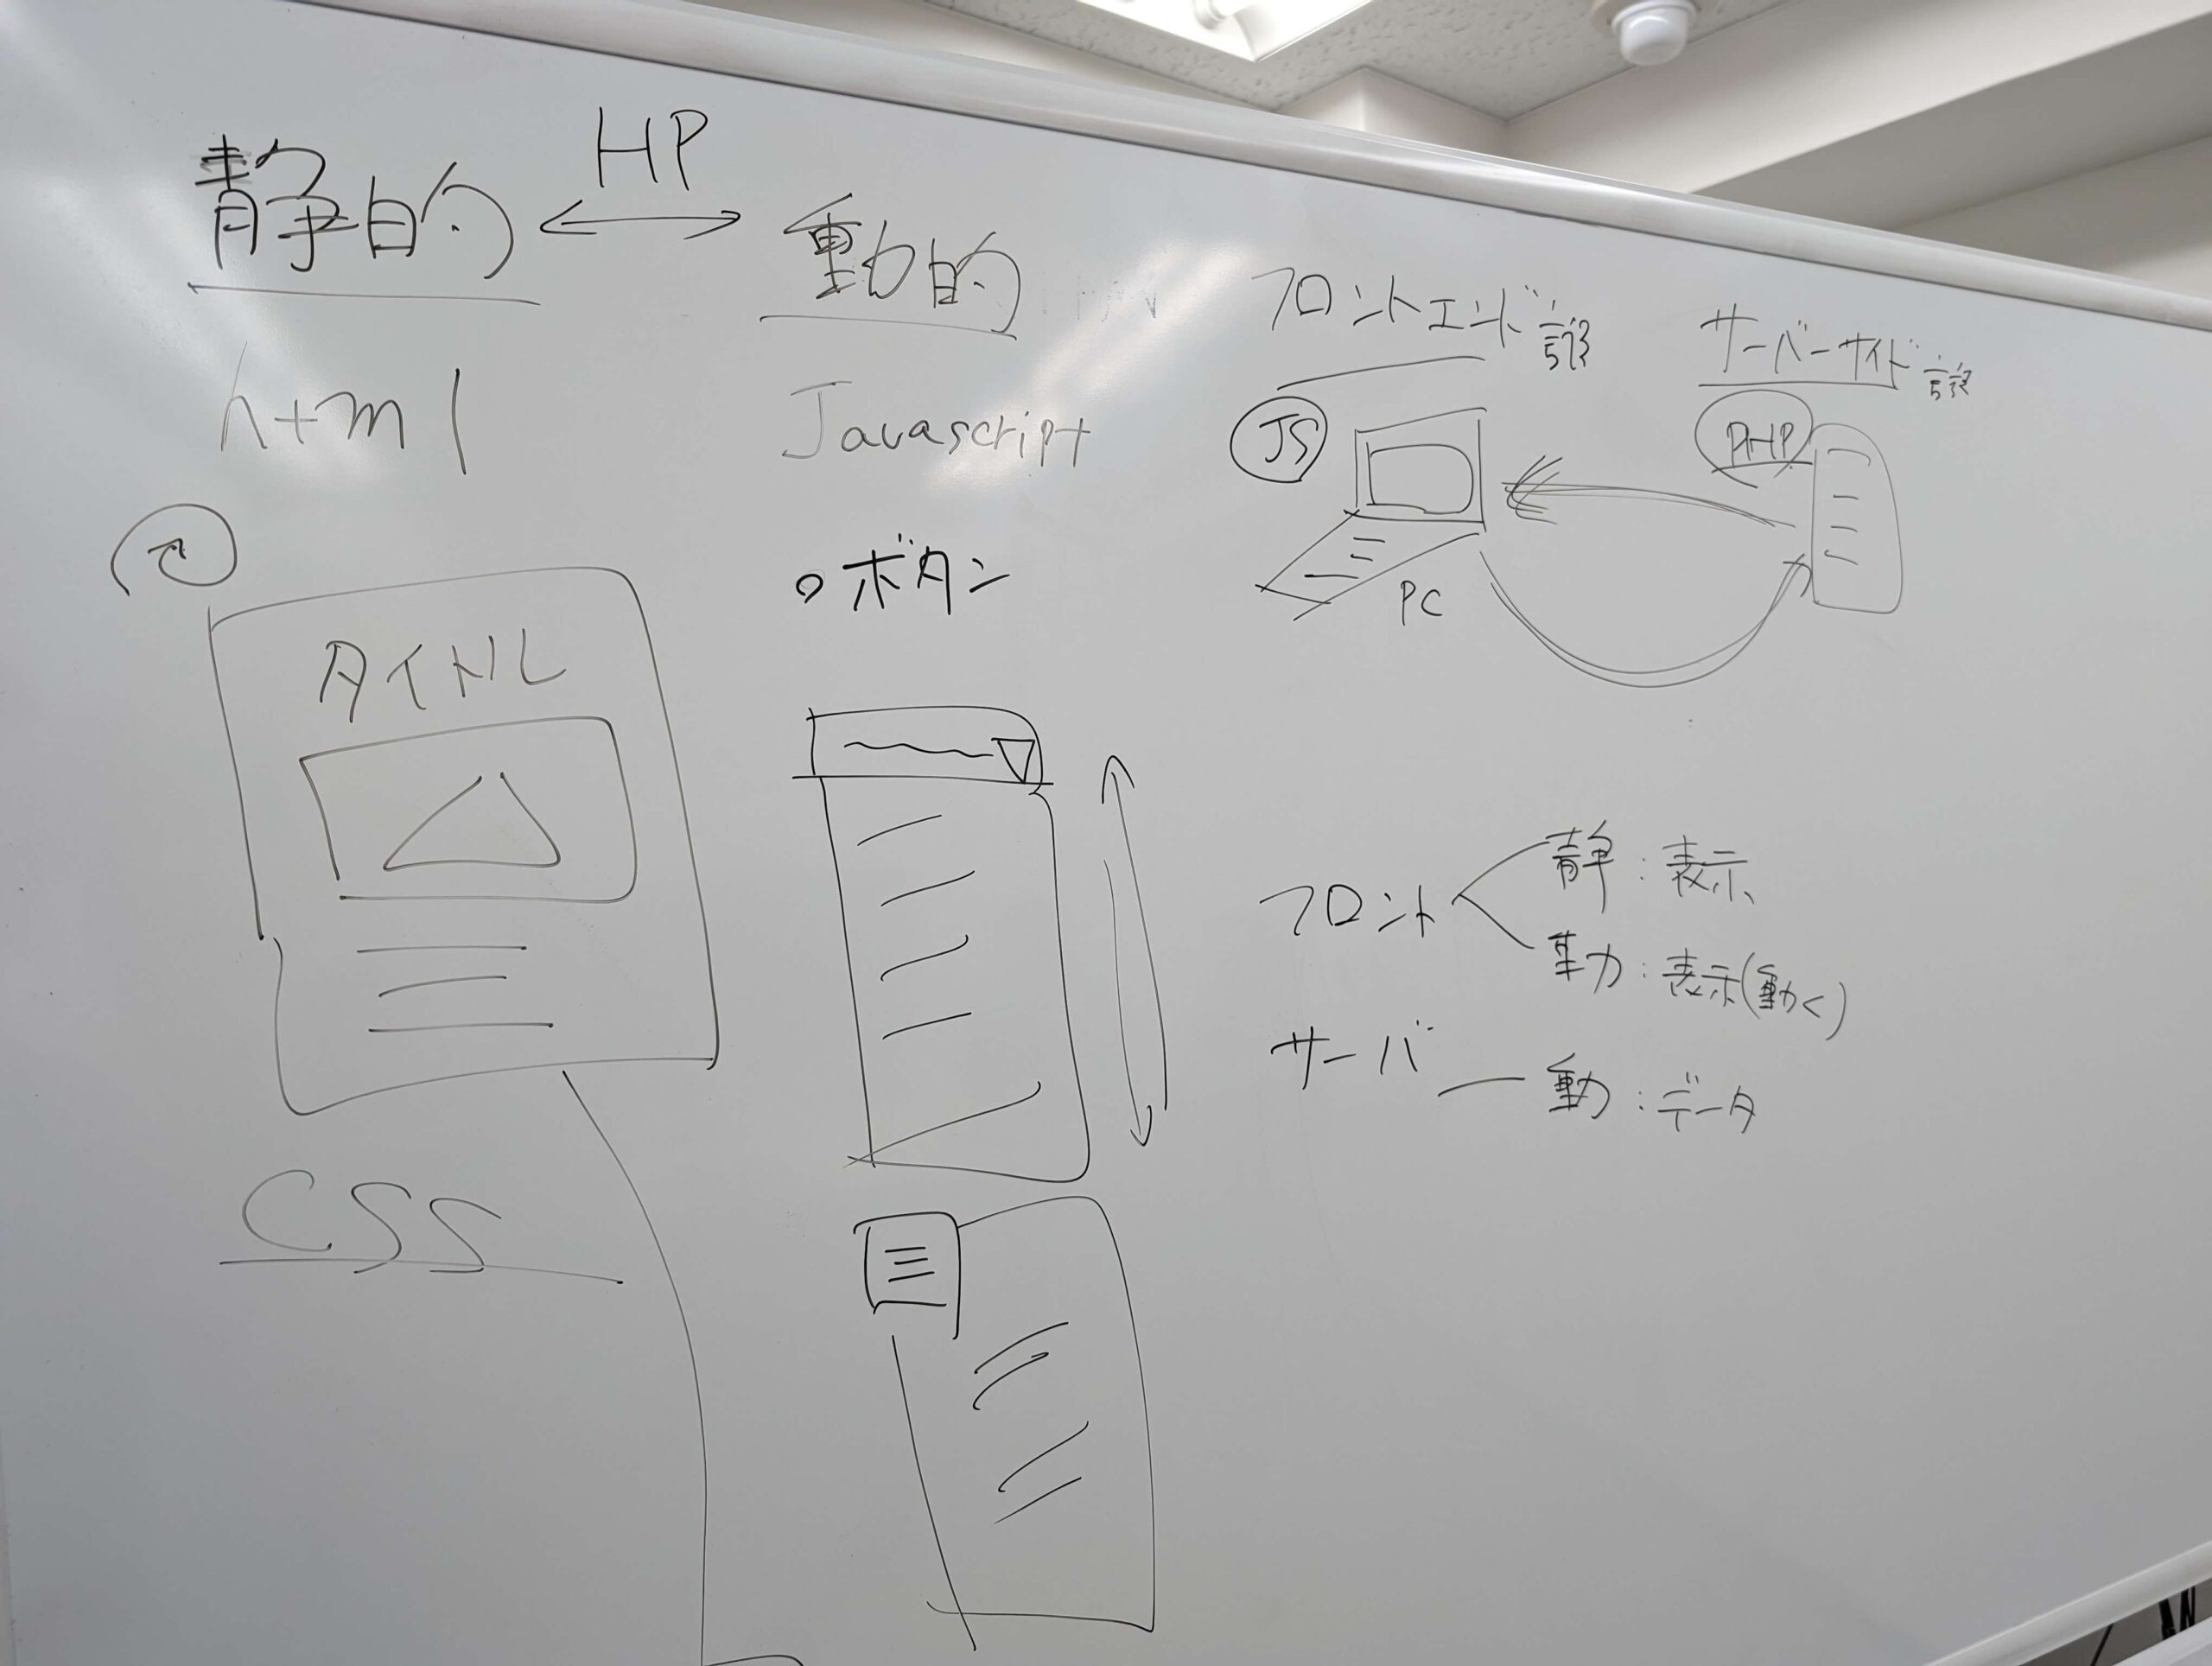 HP
静的 ⟷ 動的
html
Javascript
タイトル
CSS
・ボタン
フロントエンド言語
サーバーサイド言語
JS
PHP
PC
フロント
静:表示
動:表示(動く)
サーバ
動:データ